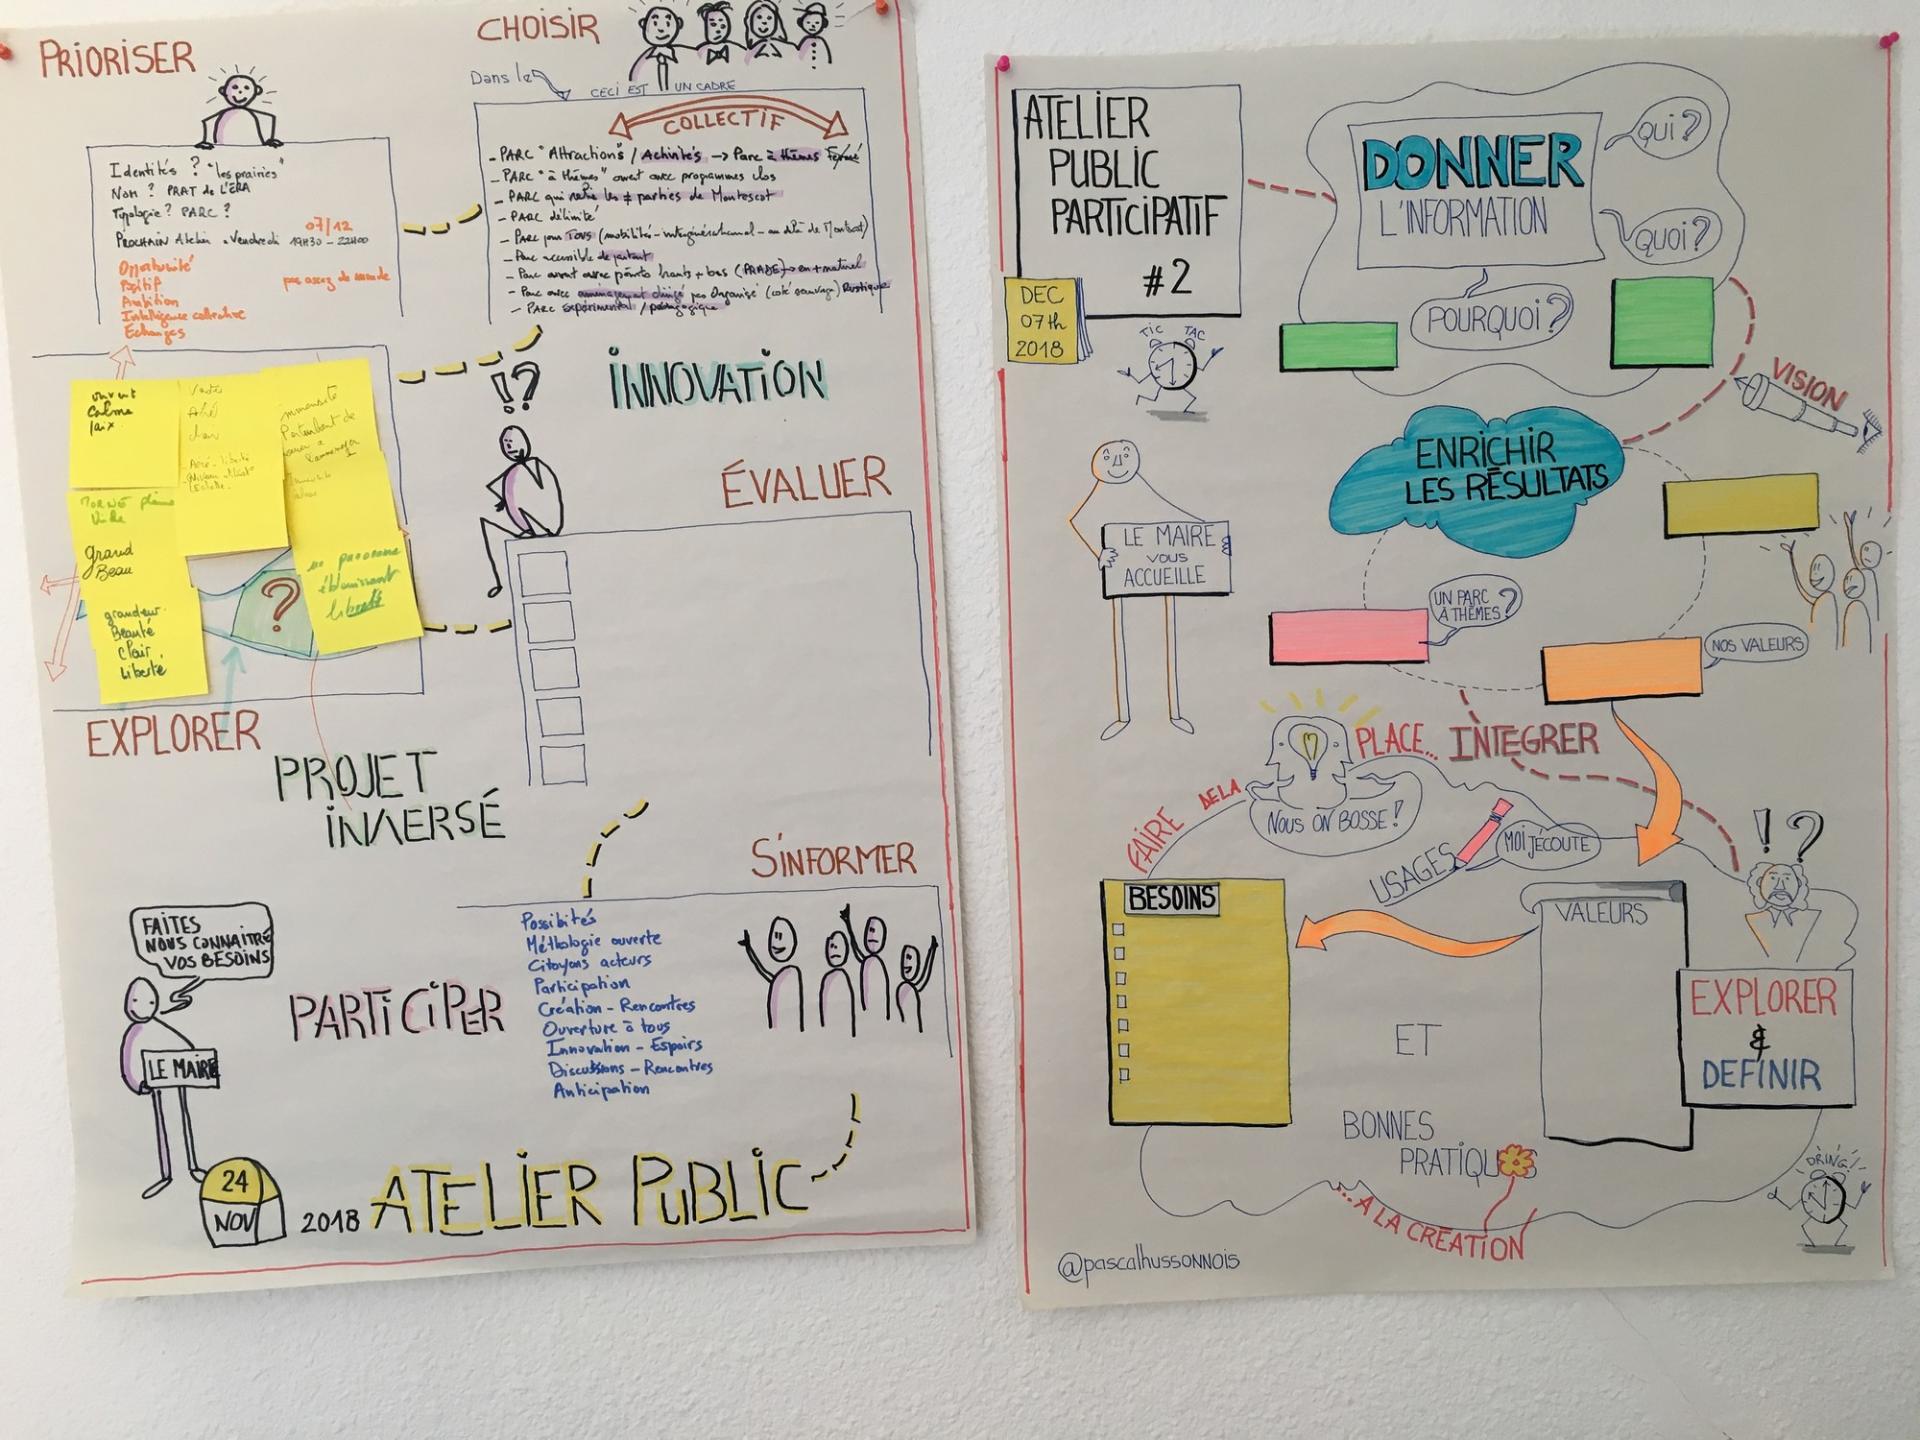 PRIORISER
Identités ? "les prairies"
Nom ? PRAT de L'ÉRA
Typologie ? PARC ?
07/12
PROCHAIN Atelier Vendredi 19H30 - 22H00
Opportunité
Positif
pas assez de monde
Ambition
Intelligence collective
Échanges
CHOISIR
Dans le
CECI EST UN CADRE
COLLECTIF
- PARC "Attractions / Activités → Parc à thèmes Fermé
- PARC "à thèmes" ouvert avec programmes clos
- PARC qui relie les ≠ parties de Montescot
- PARC délimité
- PARC pour TOUS (mobilités - intergénérationnel - au delà de Montescot)
- Parc accessible de partout
- Parc ouvert avec points hauts + bas (PRADE) → en + naturel
- Parc avec aménagement dirigé pas Organisé (coté sauvage) Rustique
- PARC expérimental / pédagogique
!?
INNOVATION
ouvert
calme
paix
grand
Beau
grandeur
Beauté
Clair
liberté
un panorama
éblouissant
liberté
?
ÉVALUER
EXPLORER
PROJET
INVERSÉ
S'INFORMER
Possibités
Méthologie ouverte
Citoyens acteurs
Participation
Création - Rencontres
Ouverture à tous
Innovation - Espoirs
Discussions - Rencontres
Anticipation
FAITES
NOUS CONNAITRE
VOS BESOINS
PARTICIPER
LE MAIRE
24
NOV
2018 ATELIER PUBLIC
ATELIER
PUBLIC
PARTICIPATIF
#2
DEC
07th
2018
TIC TAC
DONNER
L'INFORMATION
QUI ?
QUOI ?
POURQUOI ?
VISION
ENRICHIR
LES RÉSULTATS
LE MAIRE
VOUS
ACCUEILLE
UN PARC
À THÈMES ?
NOS VALEURS
FAIRE DE LA PLACE... INTEGRER
NOUS ON BOSSE !
USAGES
MOI J'ÉCOUTE
!?
BESOINS
VALEURS
ET
EXPLORER
&
DEFINIR
BONNES
PRATIQUES
... A LA CRÉATION
DRING !
@pascalhussonnois